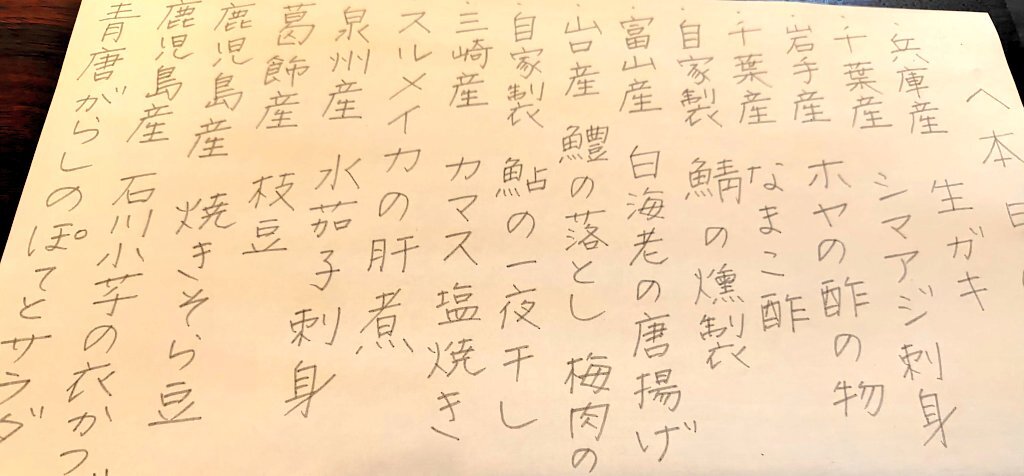 へ本日
・兵庫産 生ガキ
・千葉産 シマアジ刺身
・岩手産 ホヤの酢の物
・千葉産 なまこ酢
・自家製 鯖の燻製
・富山産 白海老の唐揚げ
・山口産 鱧の落とし 梅肉の
・自家製 鮎の一夜干し
・三崎産 カマス塩焼き
・スルメイカの肝煮
・泉州産 水茄子刺身
葛飾産 枝豆
鹿児島産 焼きそら豆
鹿児島産 石川小芋の衣かつ
青唐がらしのぽてとサラダ